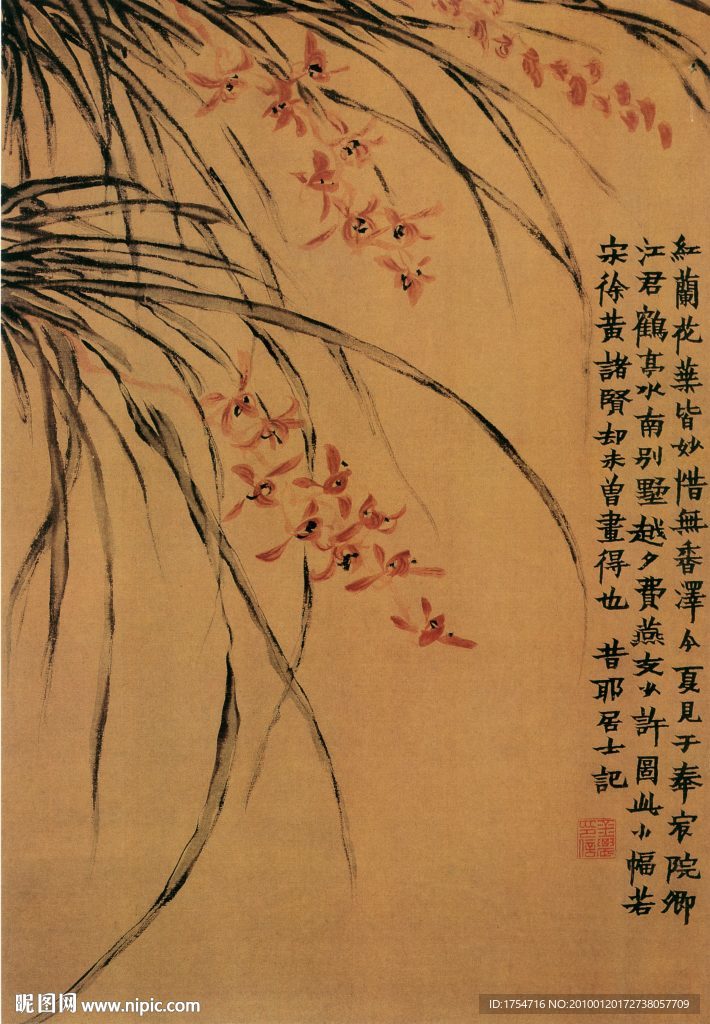 紅蘭花葉皆妙惜無香澤今夏見于奉宸院卿
江君鶴亭水南別墅越夕費燕支少許圖此小幅若
宋徐黃諸賢却未曾畫得也 昔耶居士記
昵图网 www.nipic.com
ID:1754716 NO:20100120172738057709